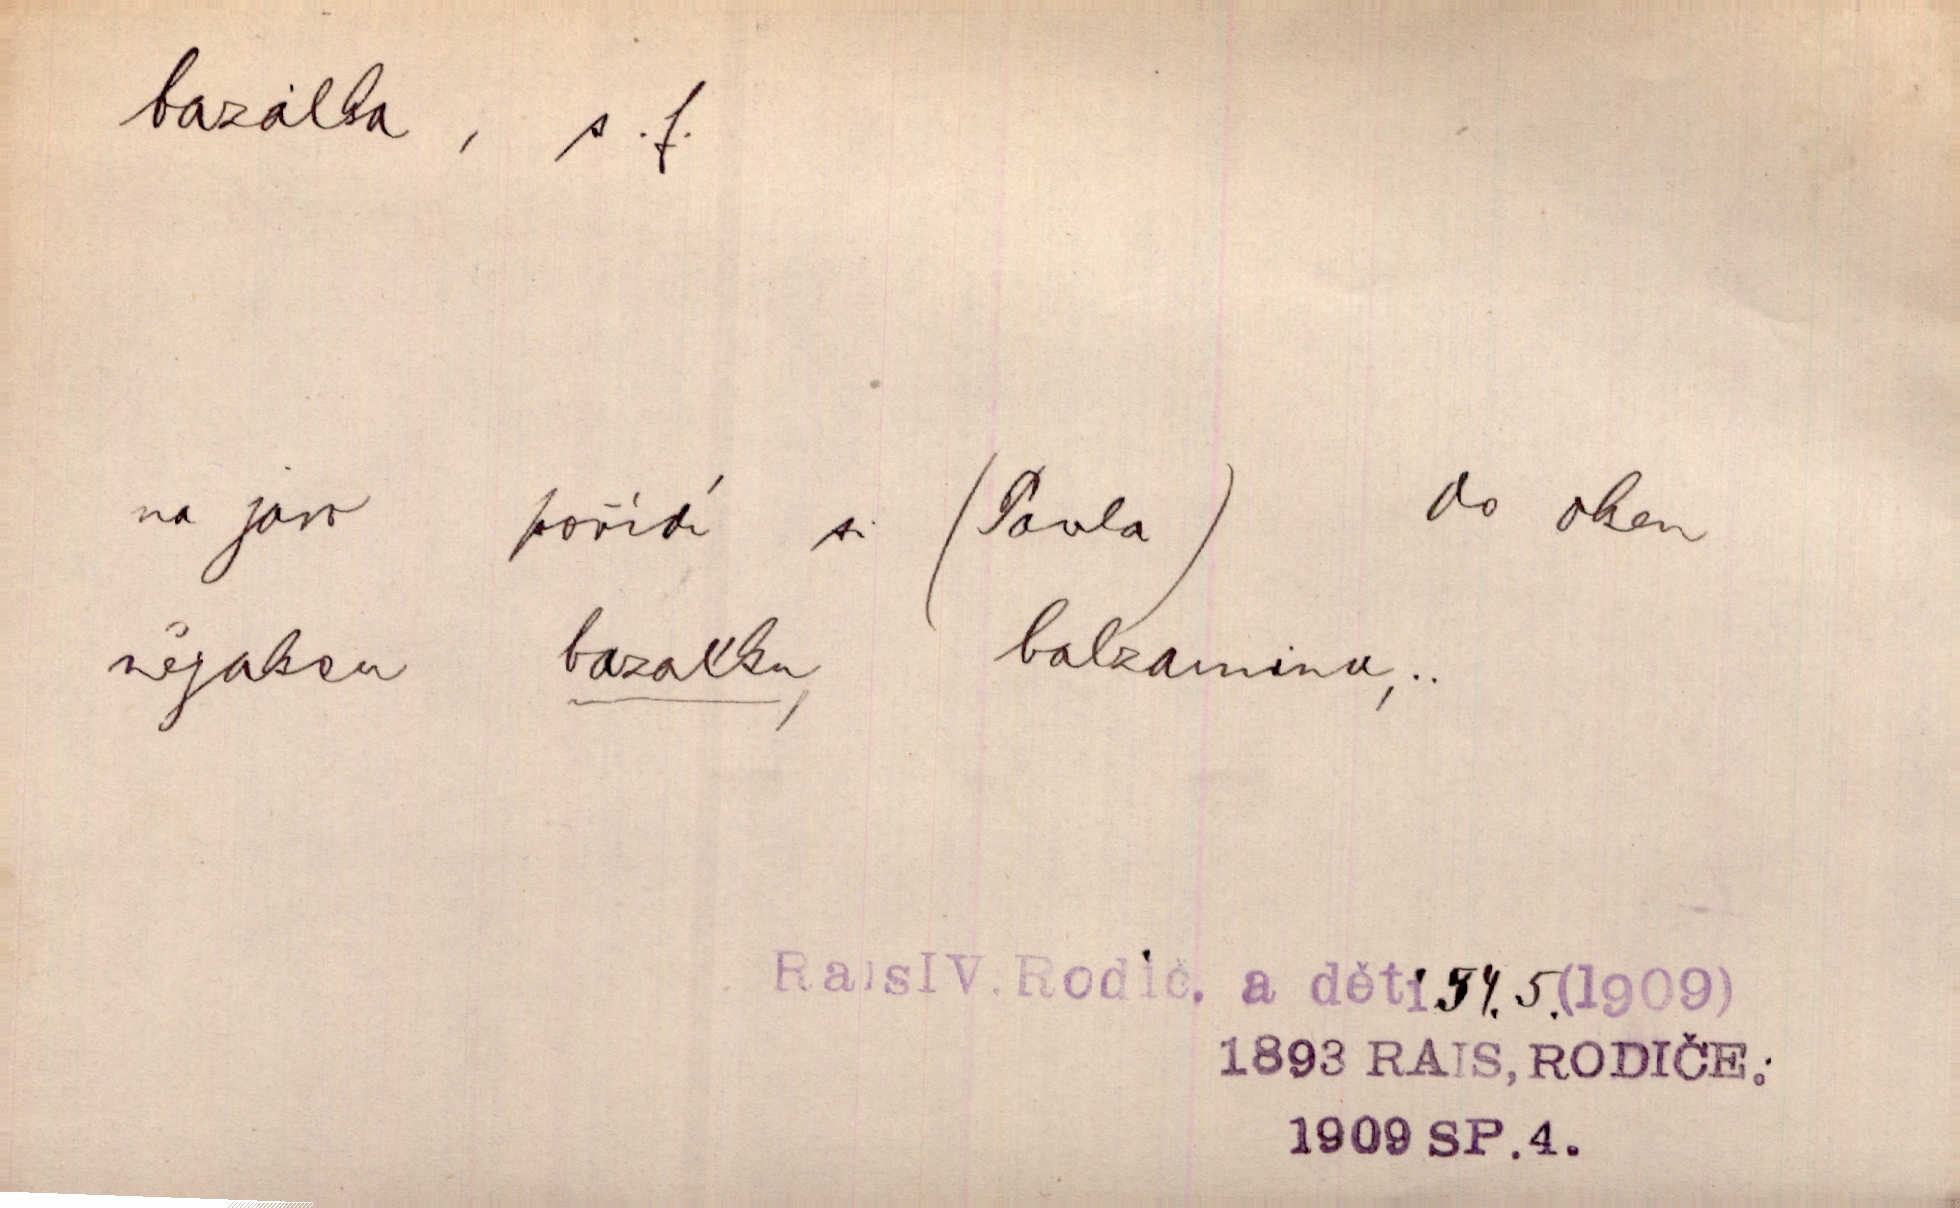 bazalka, s. f.
na jaro pořídí si (Pavla) do oken
nějakou bazalku, balzaminu,..
RaisIV. Rodič. a děti 54.5.(1909)
1893 RAIS, RODIČE.
1909 SP.4.